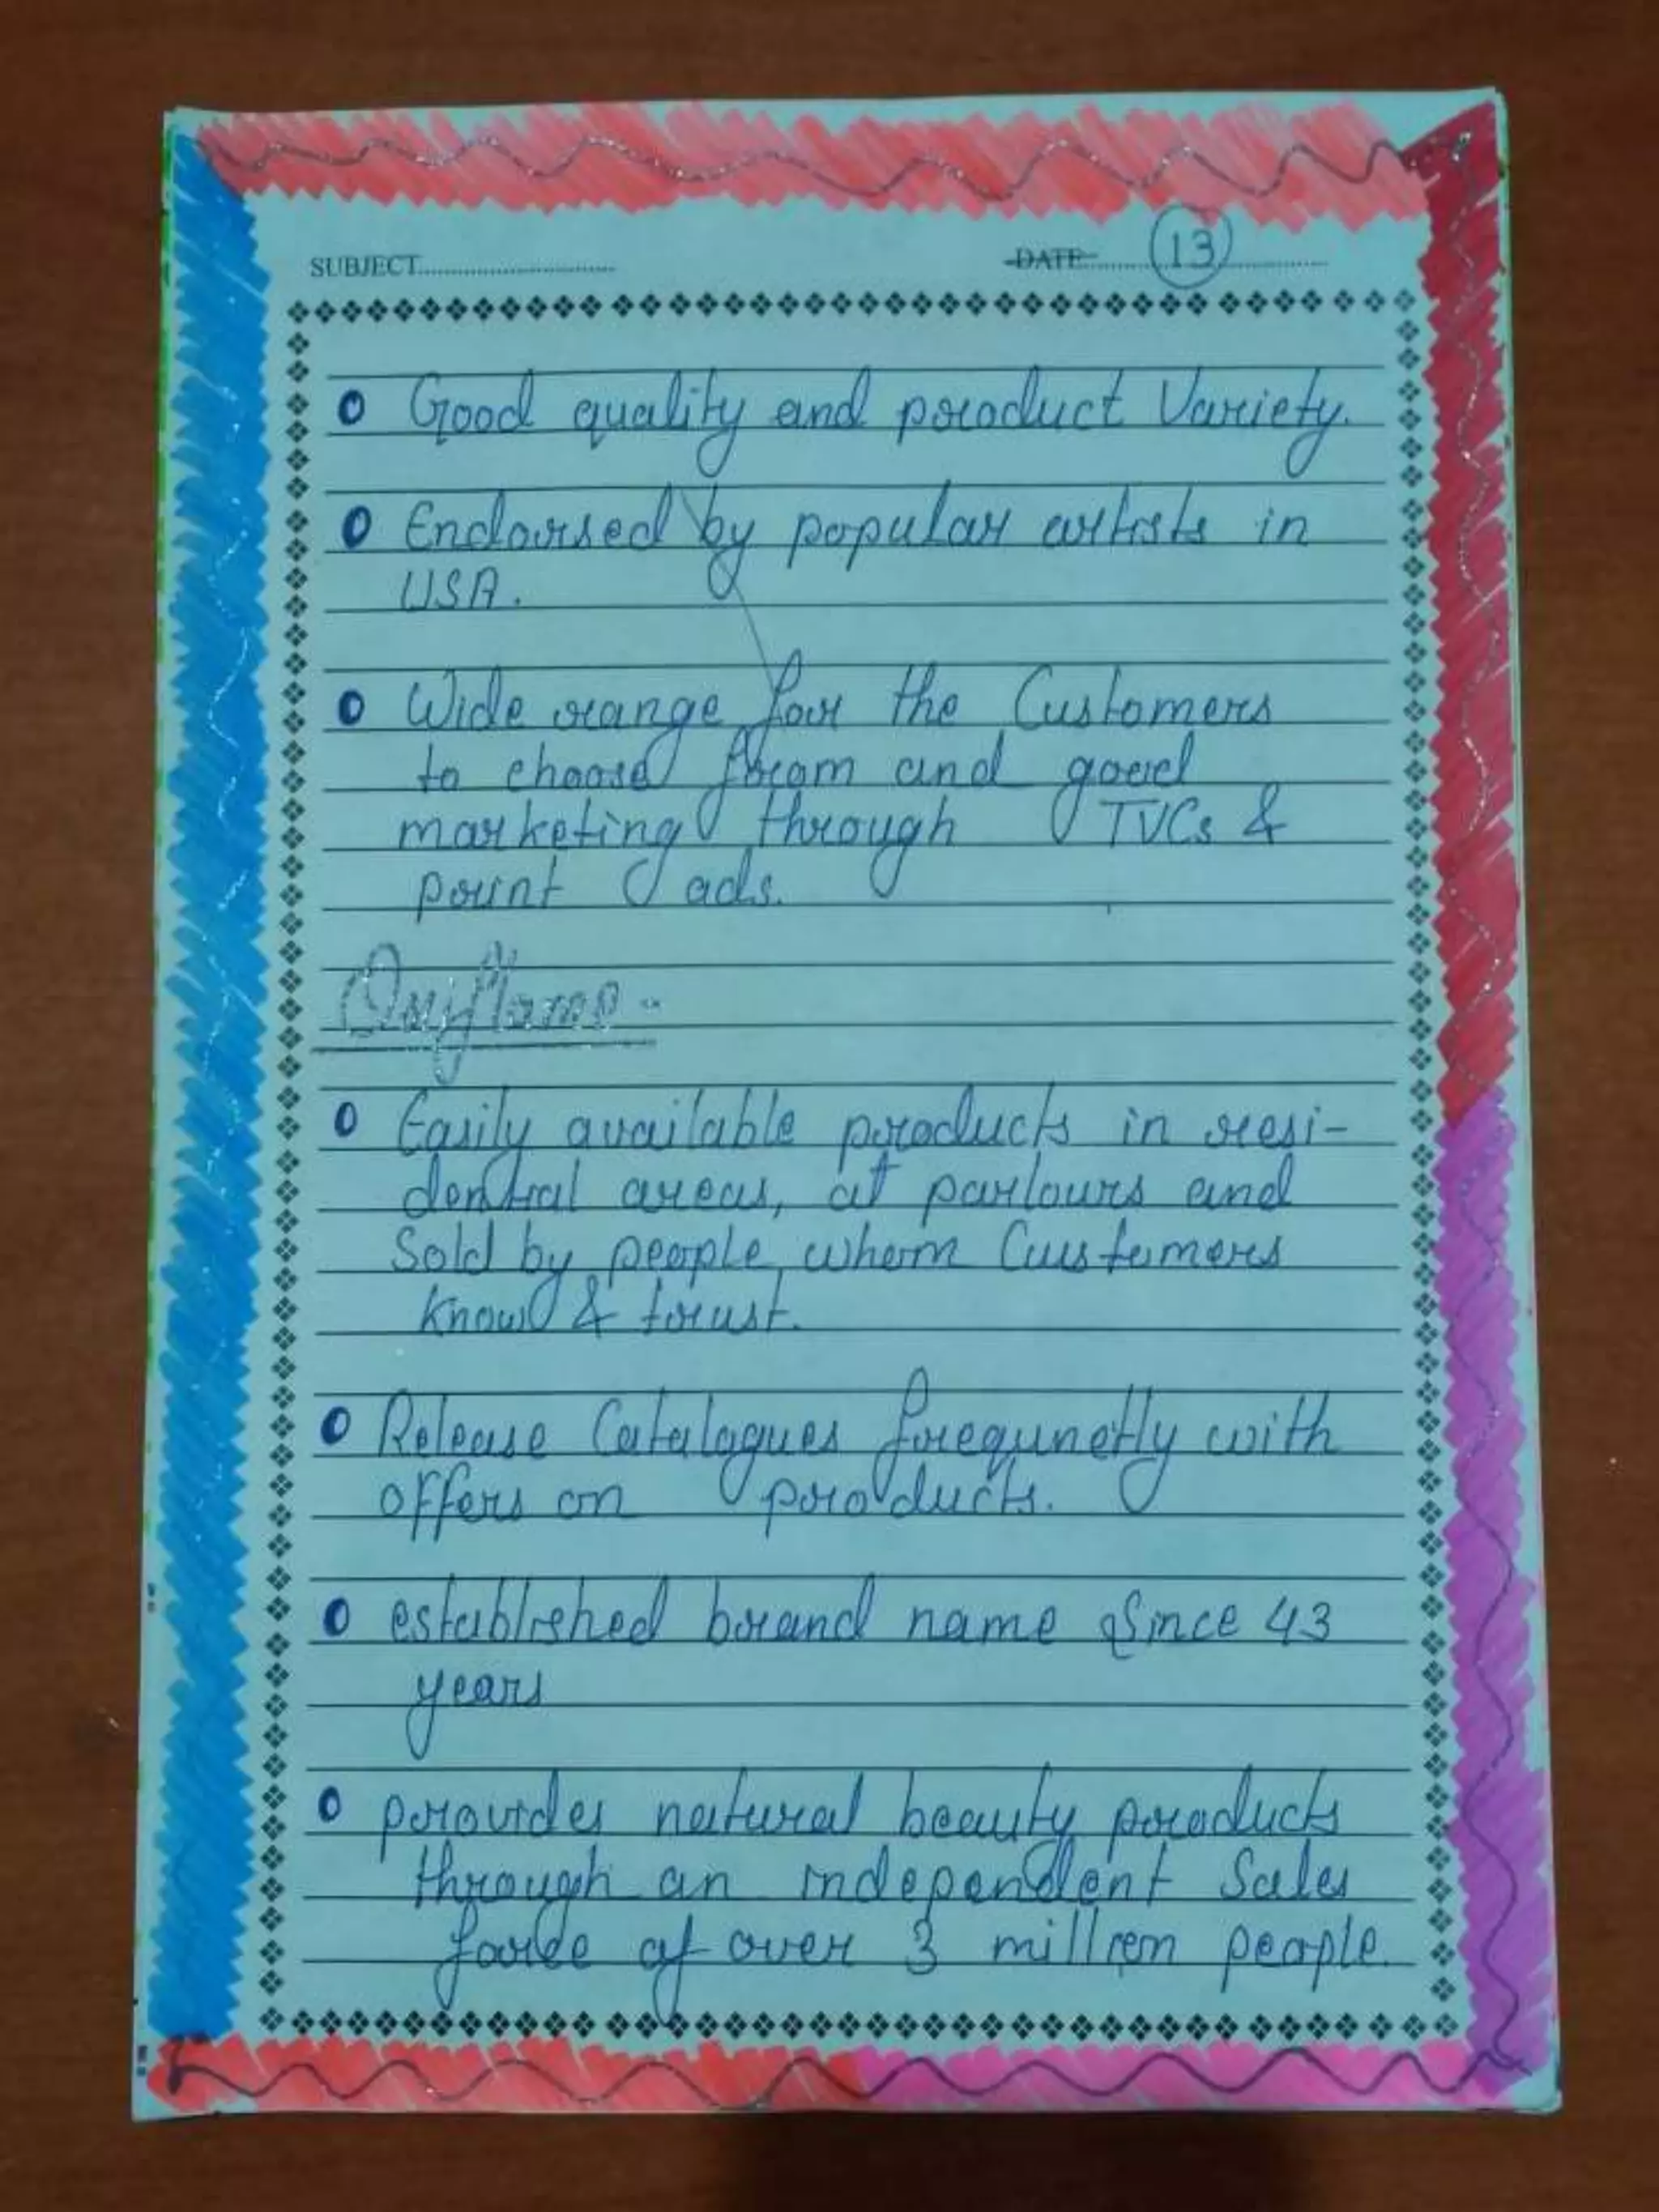 SUBJECT
DATE 13
Good quality and product Variety.
Endorsed by popular artists in
USA.
Wide range for the Customers
to choose from and good
marketing through TVCs &
print ads.
Oriflame -
Easily available products in resi-
dential areas, at parlours and
Sold by people whom Customers
know & trust.
Release Catalogues frequnetly with
offers on products.
established brand name Since 43
years
provides natural beauty products
through an independent Sales
force of over 3 million people.